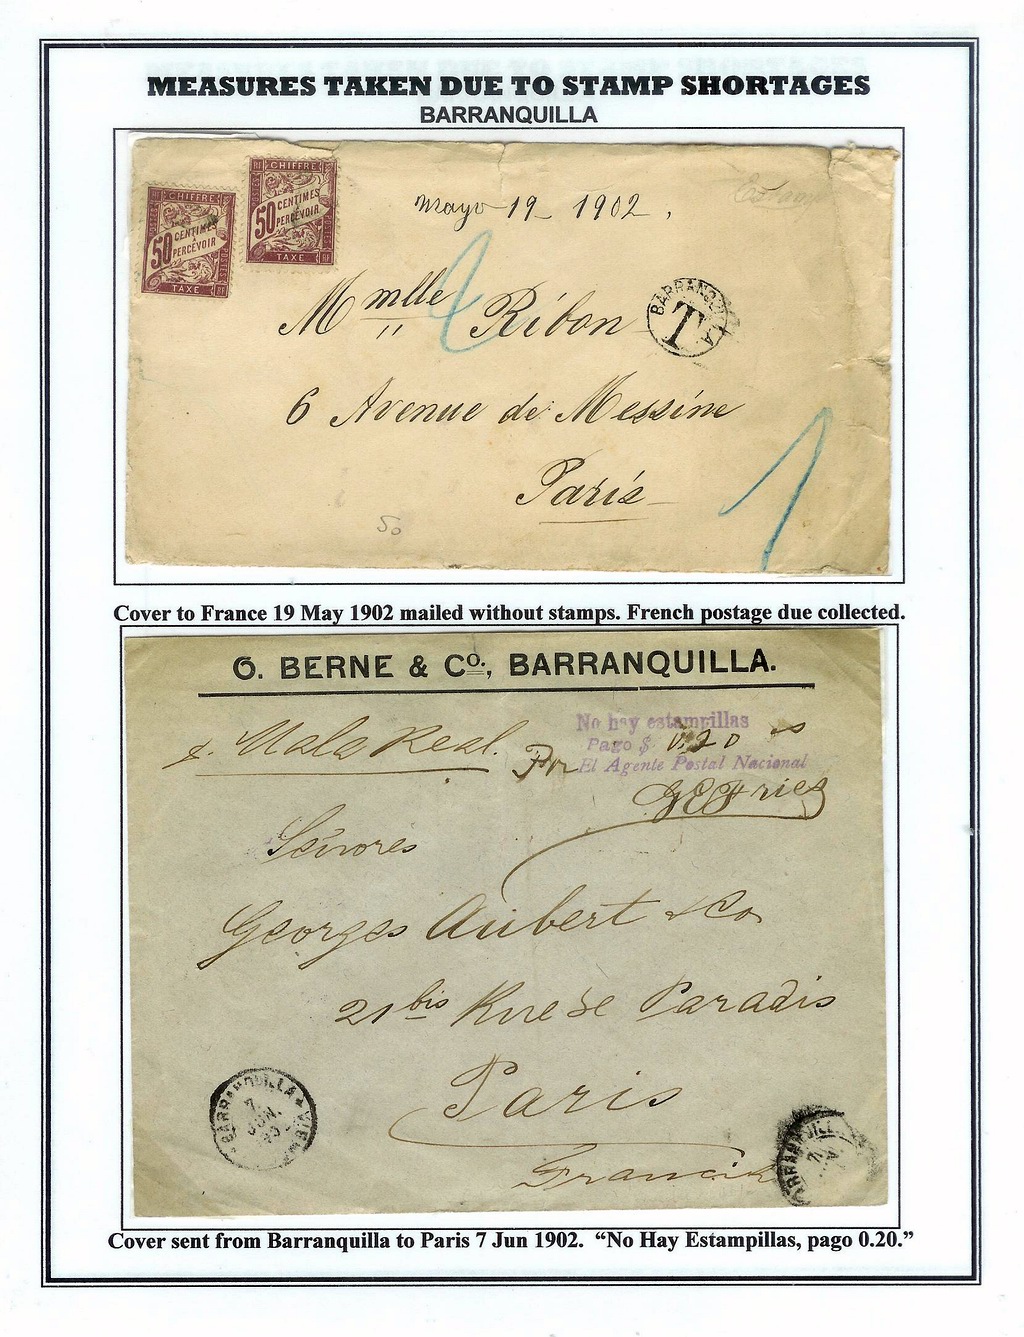 MEASURES TAKEN DUE TO STAMP SHORTAGES
BARRANQUILLA
CHIFFRE
50 CENTIMES
À PERCEVOIR
TAXE
CHIFFRE
50 CENTIMES
À PERCEVOIR
TAXE
Mayo 19_ 1902.
Mmlle Ribon
BARRANQUILLA
T
6 Avenue de Messine
Paris
1
50
Cover to France 19 May 1902 mailed without stamps. French postage due collected.
O. BERNE & Co., BARRANQUILLA.
Mala Real.
No hay estampillas
Pago $ 0.20
Por El Agente Postal Nacional
Señores
Georges Aubert & Co
21 bis Rue de Paradis
Paris
BARRANQUILLA
7
JUN.
BARRANQUILLA
7
Cover sent from Barranquilla to Paris 7 Jun 1902. “No Hay Estampillas, pago 0.20.”